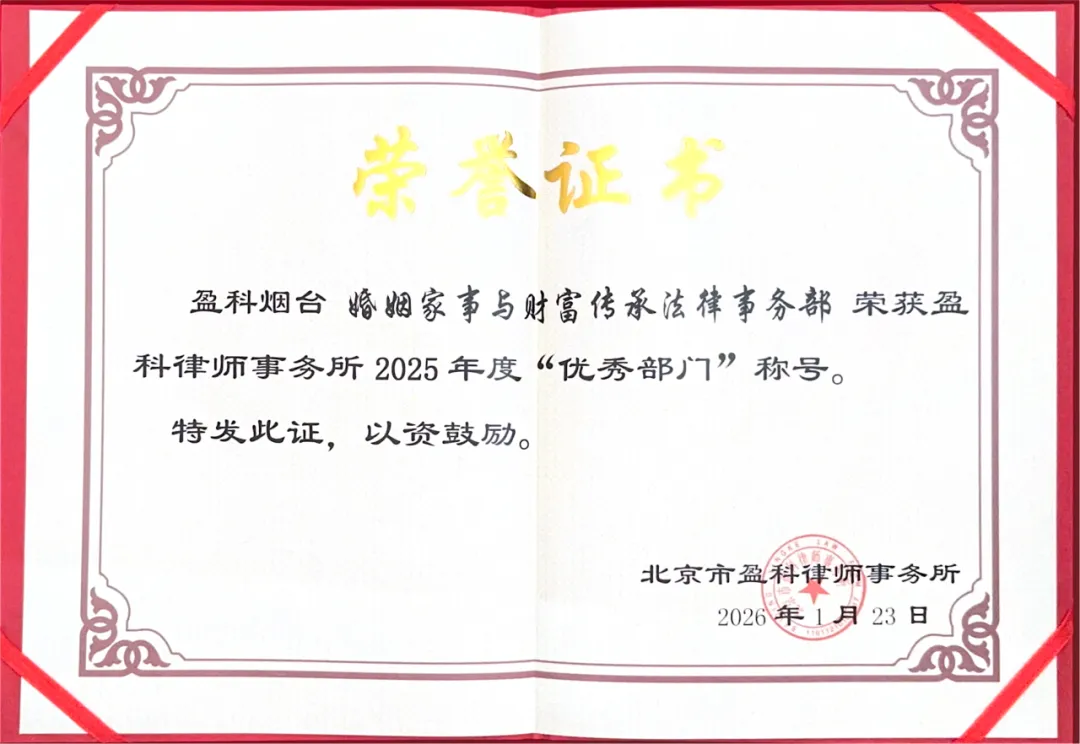 荣誉证书
盈科烟台 婚姻家事与财富传承法律事务部 荣获盈
科律师事务所 2025 年度“优秀部门”称号。
特发此证，以资鼓励。
北京市盈科律师事务所
2026 年 1 月 23 日